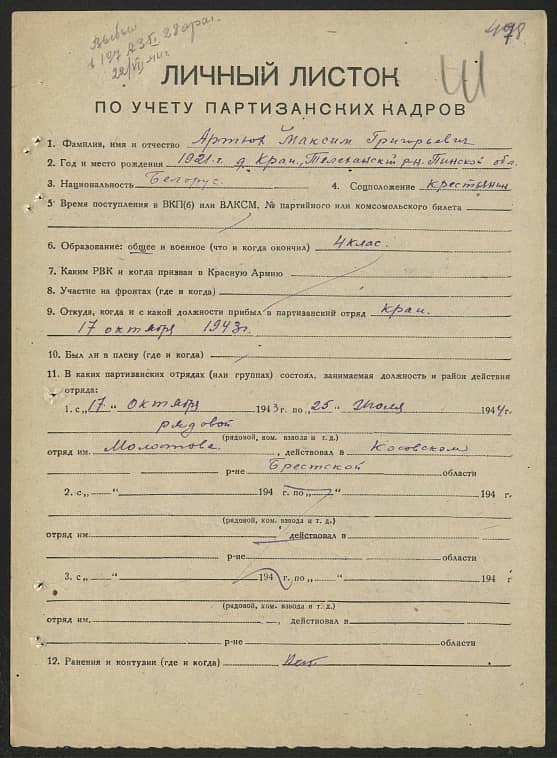 Выбыл
в 197 АЗП, 28 арм.
22/VII 44 г.
498
ЛИЧНЫЙ ЛИСТОК
ПО УЧЕТУ ПАРТИЗАНСКИХ КАДРОВ
1. Фамилия, имя и отчество Артюх Максим Григорьевич
2. Год и место рождения 1921 г. д. Краи, Телеханский р-н. Пинской обл.
3. Национальность Белорус. 4. Соцположение крестьянин
5. Время поступления в ВКП(б) или ВЛКСМ, № партийного или комсомольского билета
6. Образование: общее и военное (что и когда окончил) 4 клас.
7. Каким РВК и когда призван в Красную Армию
8. Участие на фронтах (где и когда)
9. Откуда, когда и с какой должности прибыл в партизанский отряд Краи.
17 октября 1943 г.
10. Был ли в плену (где и когда)
11. В каких партизанских отрядах (или группах) состоял, занимаемая должность и район действия
отряда:
1. с „17“ Октября 1943 г. по „25“ Июля 1944 г.
рядовой
(рядовой, ком. взвода и т. д.)
отряд им. Молотова, действовал в Косовском
р-не Брестской области
2. с „ “ 194 г. по „ “ 194 г.
(рядовой, ком. взвода и т. д.)
отряд им. действовал в
р-не области
3. с „ “ 194 г. по „ “ 194 г
(рядовой, ком. взвода и т. д.)
отряд им. , действовал в
р-не области
12. Ранения и контузии (где и когда) Нет.